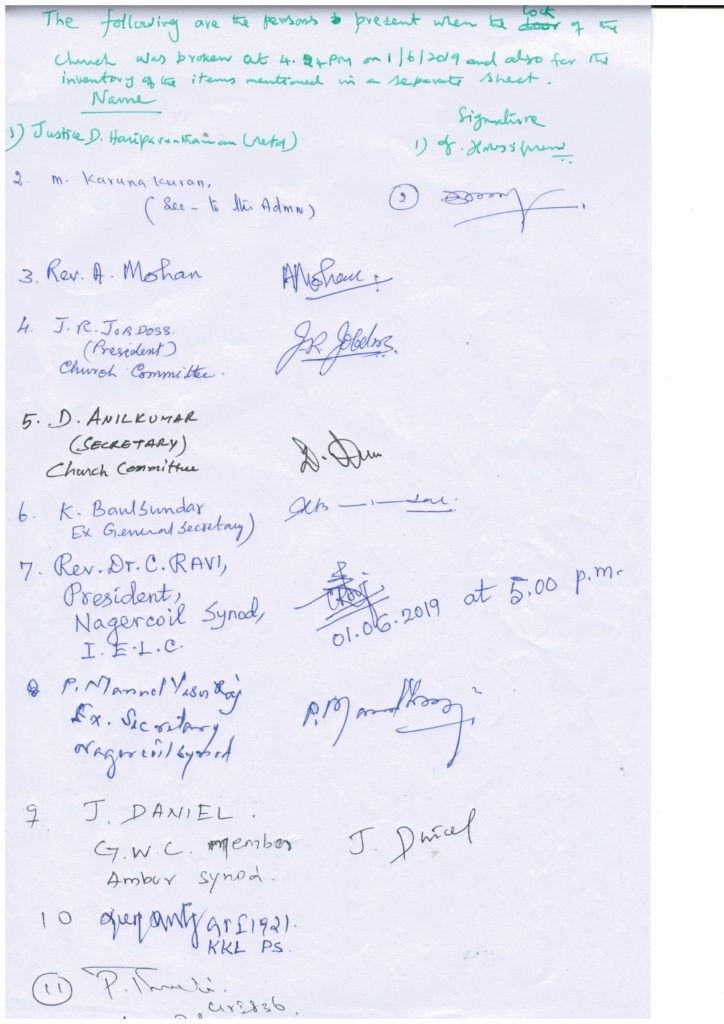 The following are the persons present when the lock of the
Church was broken at 4.24 PM on 1/6/2019 and also for the
inventory of the items mentioned in a separate sheet.
Name
Signature
1) Justice D. Hariparanthaman (retd)
1)
2. M. Karunakaran,
(Sec - to the Admn)
2
3. Rev. A. Mohan
AMohan
4. J. R. JOBDOSS.
JR Jobdoss.
(President)
Church Committee.
5. D. ANILKUMAR
(SECRETARY)
D.
Church Committee
6. K. Baulsundar
Ex General Secretary)
7. Rev. Dr. C. RAVI,
President,
Nagercoil Synod,
I.E.L.C.
CRavi
01.06.2019 at 5.00 p.m.
8 P. Manuel Yesu Raj
Ex. Secretary
Nagercoil Synod
P.
9 J. DANIEL.
G.W.C. member
Ambur synod.
J. Daniel
10
KKL PS.
11